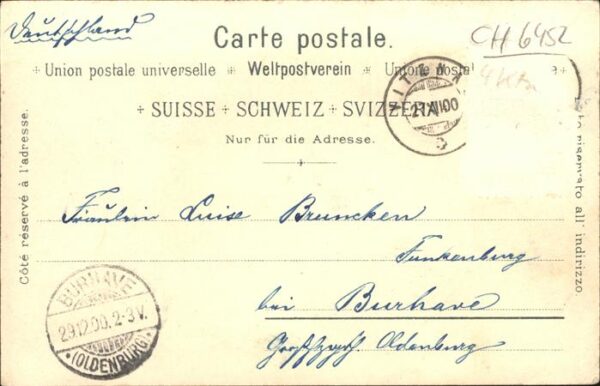 Deutschland
Carte postale.
CH 6452
Union postale universelle Weltpostverein Unione postal e
SUISSE SCHWEIZ SVIZZERA
ITZNA
27.XII.00
Nur für die Adresse.
Côté réservé à l'adresse.
Lato riservato all' indirizzo.
Fräulein Luise Bruncken
Funkenburg
bei Burhave
Großherzogth Oldenburg
BURHAVE
29.12.00. 2-3V.
(OLDENBURG)